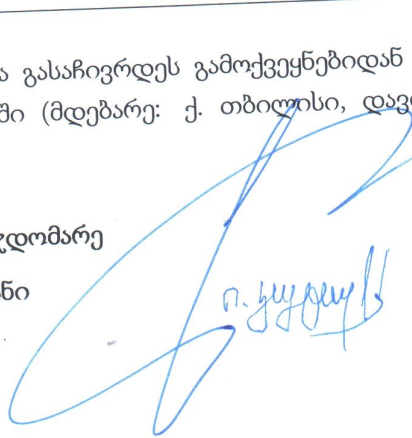 ა გასაჩივრდეს გამოქვეყნებიდან
ში (მდებარე: ქ. თბილისი, დავ
დომარე
ნი